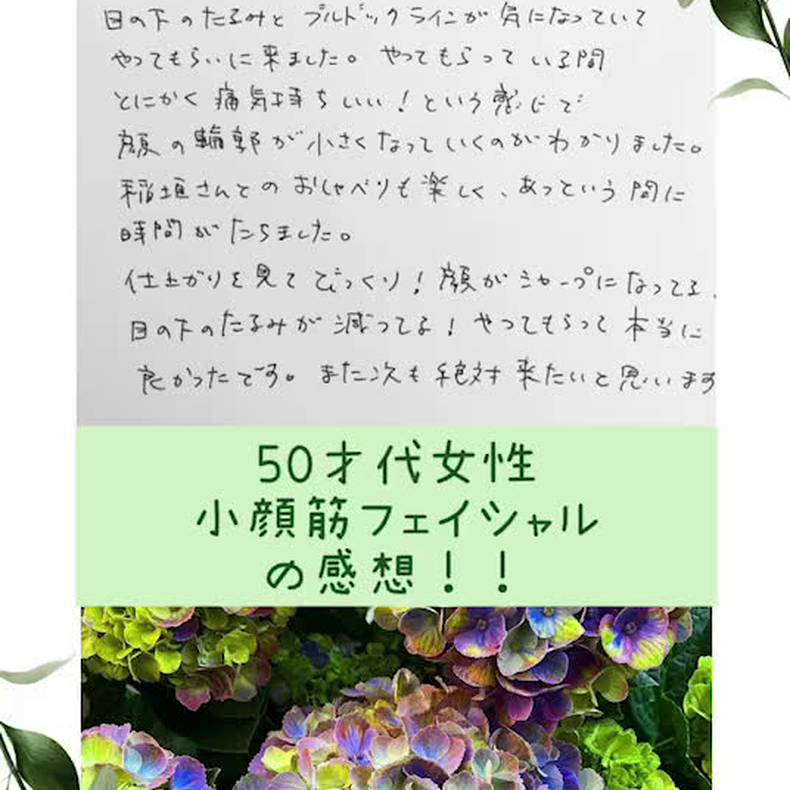 目の下のたるみと ブルドックラインが 気になっていて
やってもらいに来ました。 やってもらっている間
とにかく 痛気持ちいい！という感じで
顔の輪郭が小さくなっていくのがわかりました。
稲垣さんとのおしゃべりも楽しく、あっという間に
時間がたちました。
仕上がりを見てびっくり！顔がシャープになってる
目の下のたるみが減ってる！やってもらって本当に
良かったです。また次も絶対来たいと思います
50才代女性
小顔筋フェイシャル
の感想！！